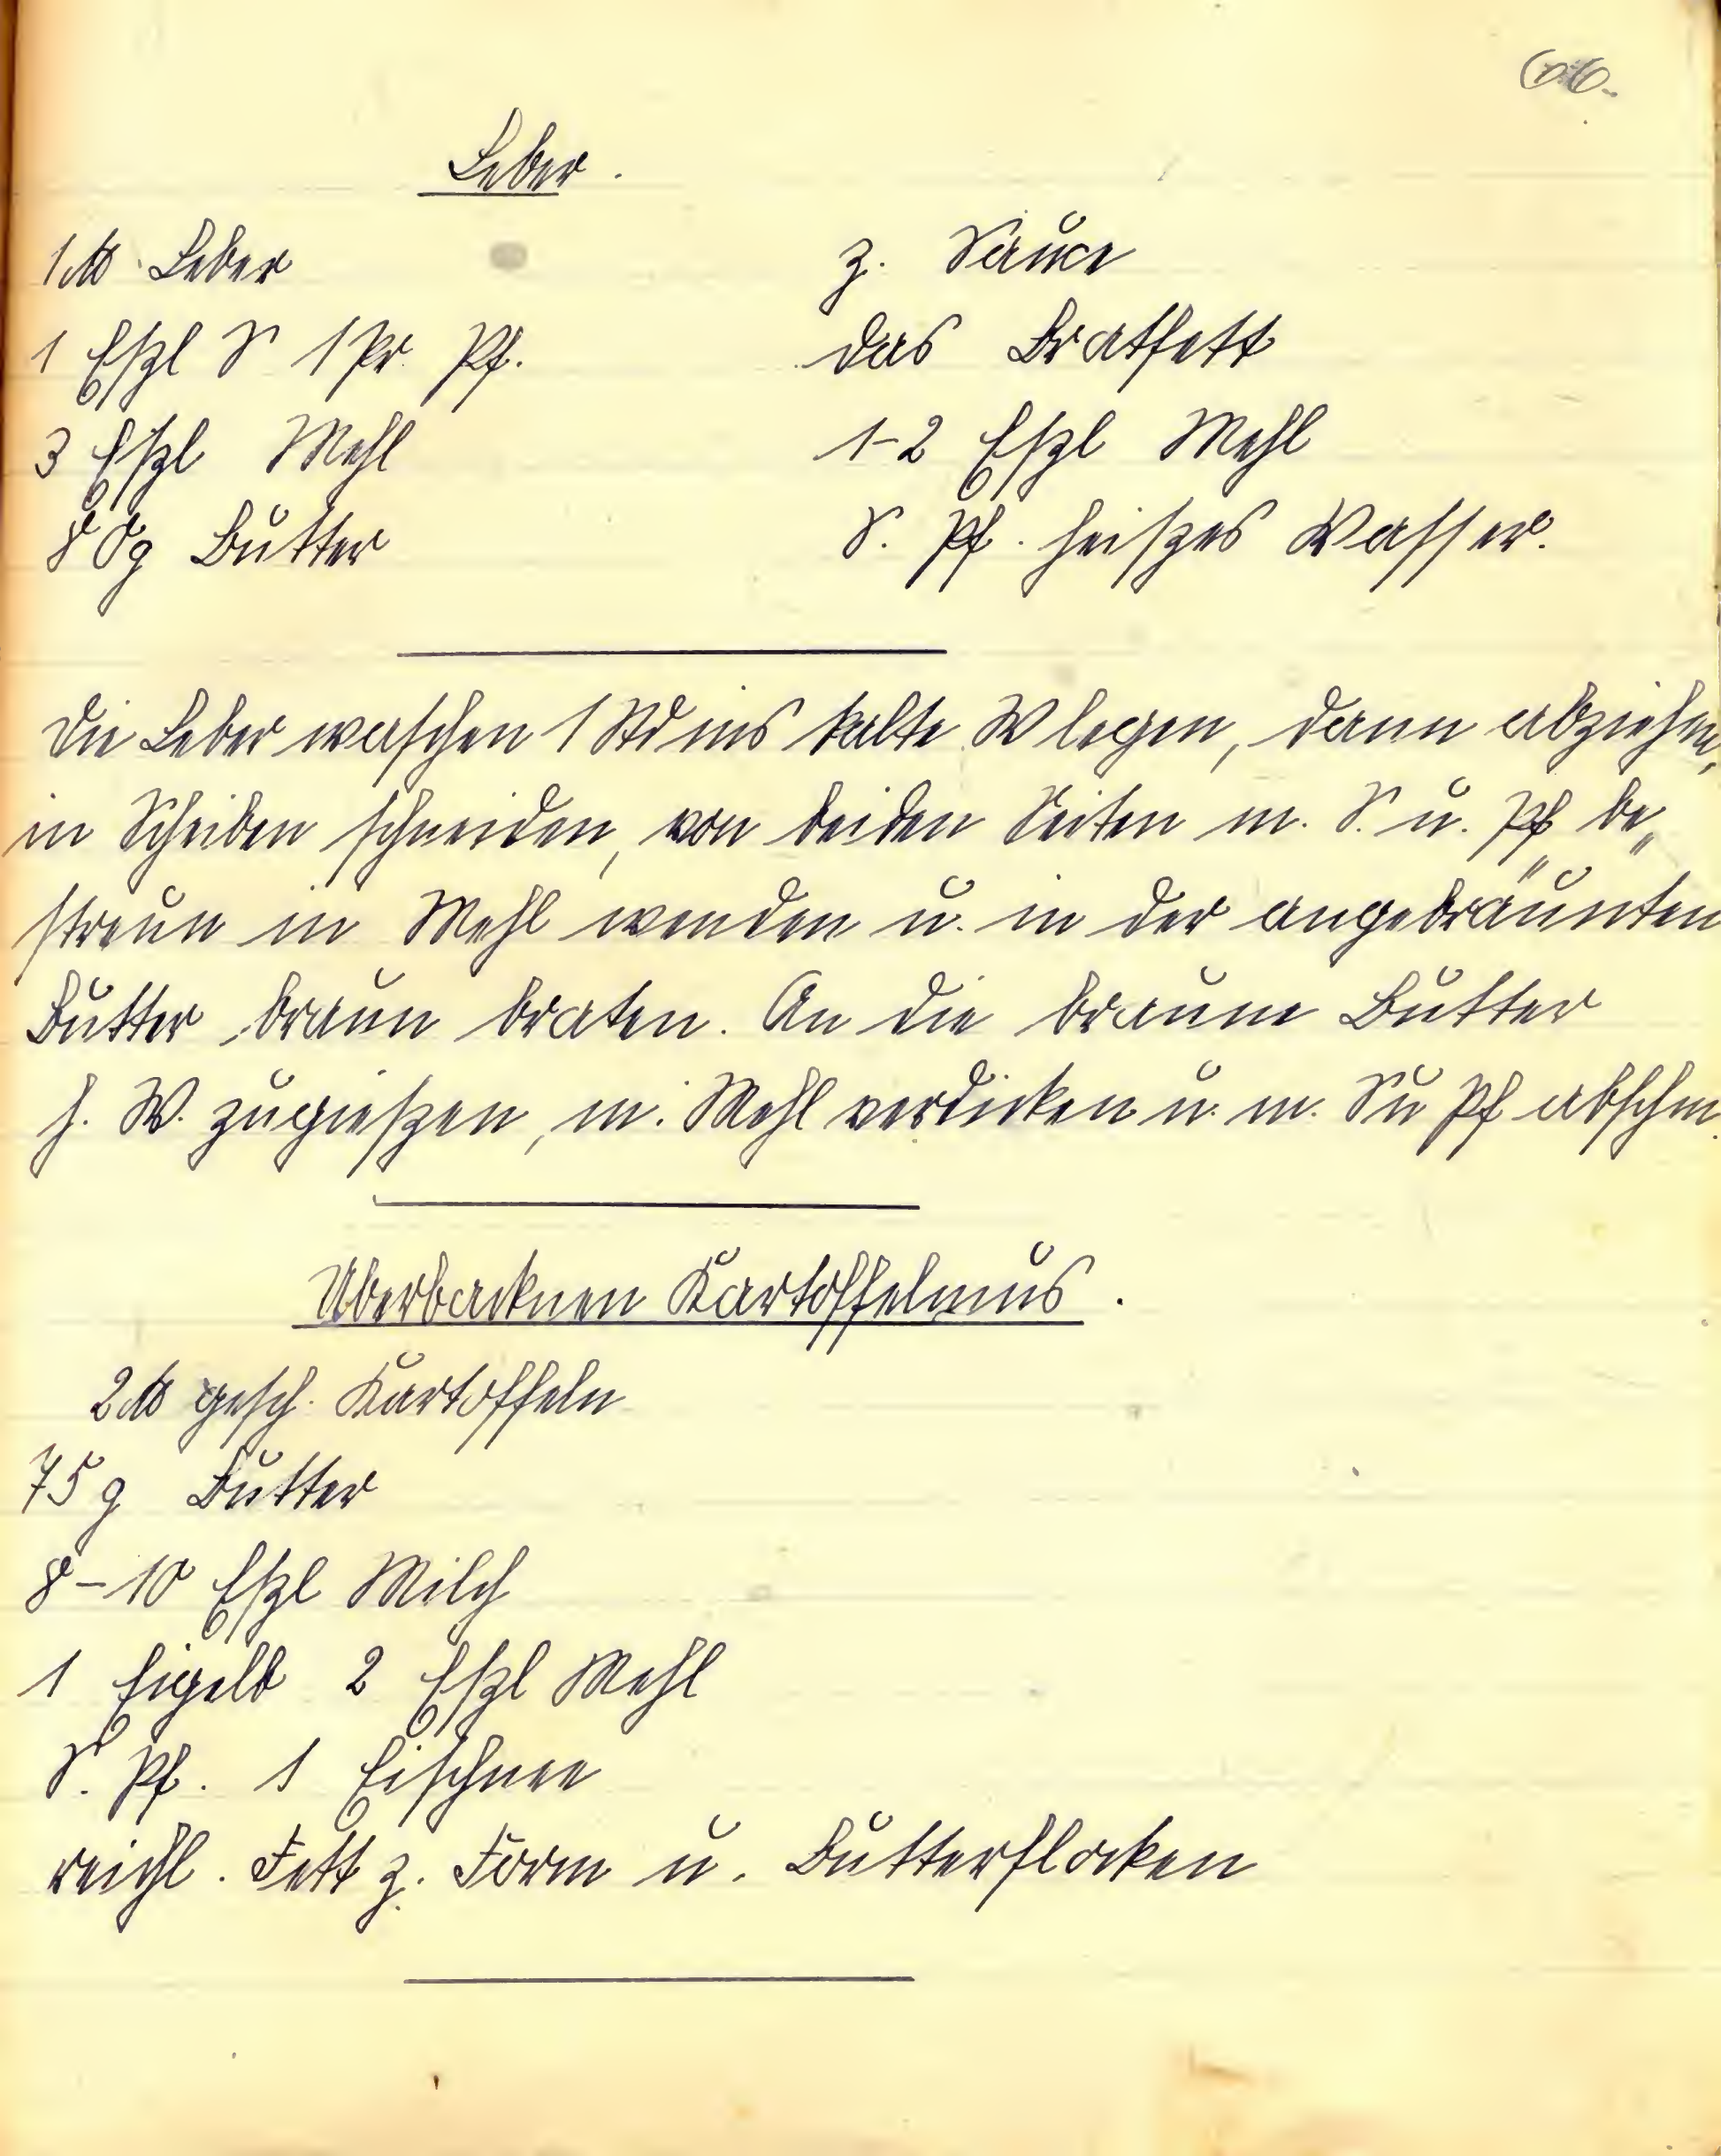 66.
Leber.
1 ℔ Leber
1 Eßl S 1 Pr. Pf.
3 Eßl Mehl
80g Butter
z. Sauce
das Bratfett
1-2 Eßl Mehl
S. Pf. heißes Wasser.
Die Leber waschen 1 Std ins kalte W legen, dann abziehen,
in Scheiben schneiden, von beiden Seiten m. S. u. Pf be„
streun in Mehl wenden u. in der angebräunten
Butter braun braten. An die braune Butter
h. W. zugießen, m. Mehl verdicken u. m. S u Pf abschm.
Überbacknen Kartoffelmus.
2 ℔ gesch. Kartoffeln
75 g Butter
8-10 Eßl Milch
1 Eigelb 2 Eßl Mehl
S. Pf. 1 Eischnee
reichl. Fett z. Form u. Butterflocken